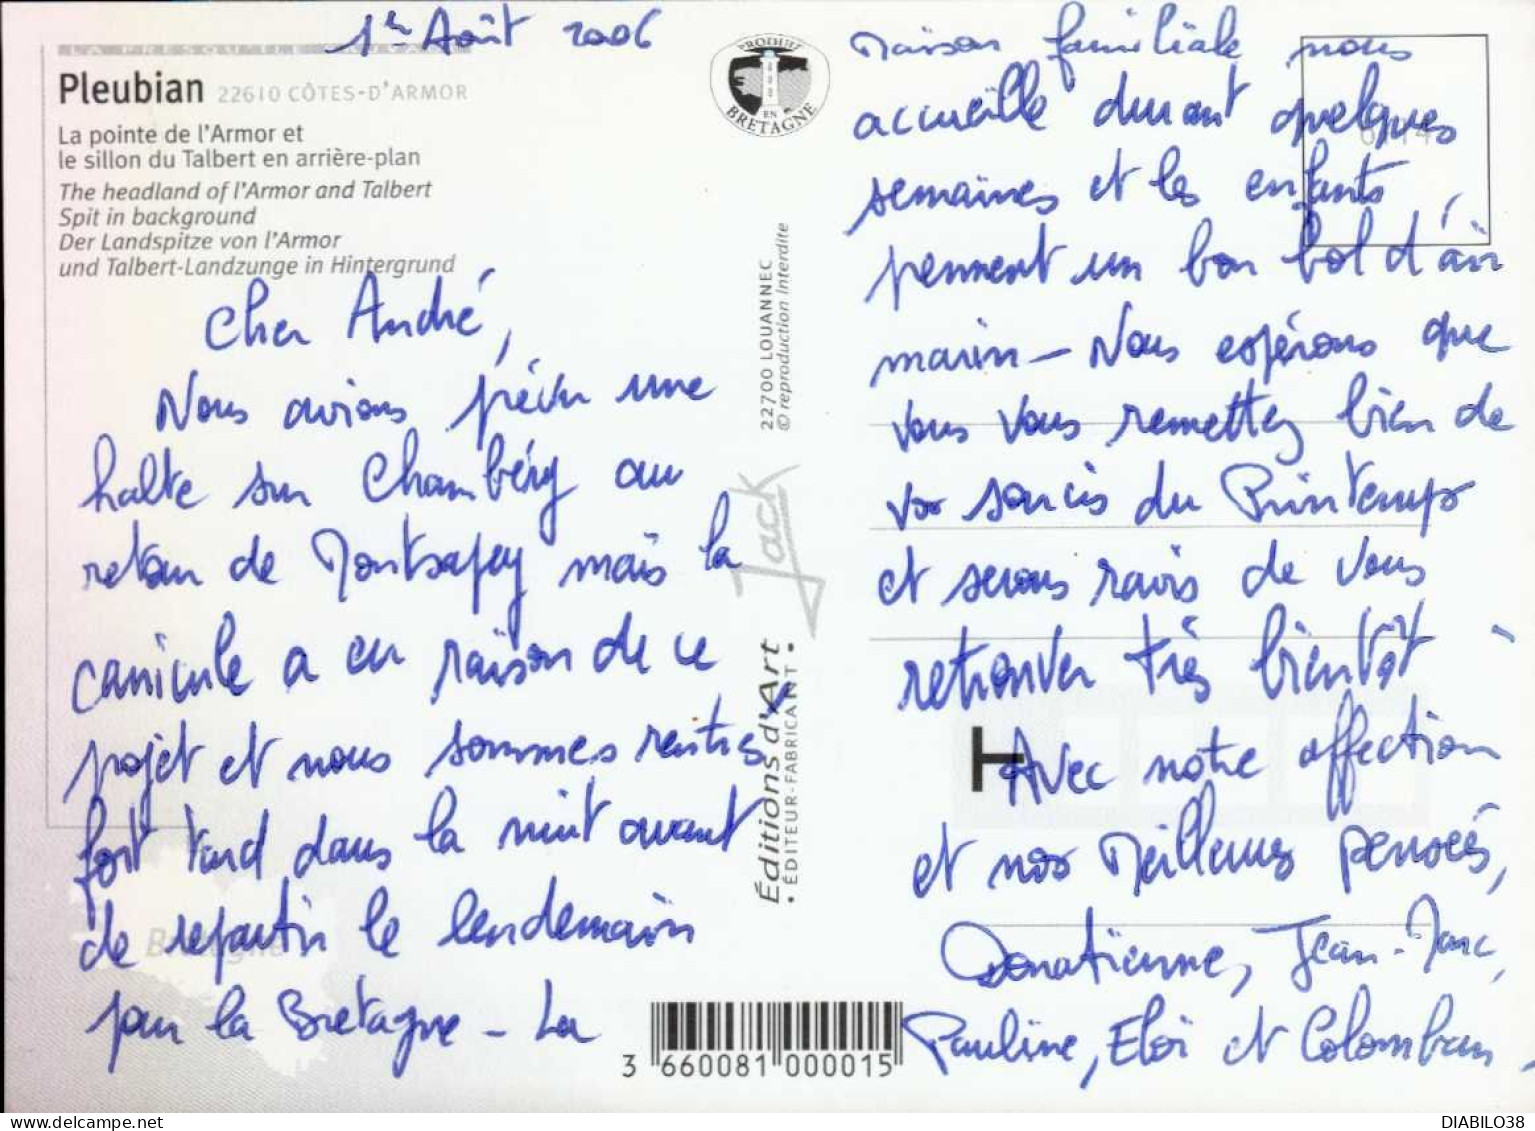 1er Août 2006
LA PRESQU'ÎLE SAUVAGE
Pleubian 22610 CÔTES-D'ARMOR
La pointe de l'Armor et
le sillon du Talbert en arrière-plan
The headland of l'Armor and Talbert
Spit in background
Der Landspitze von l'Armor
und Talbert-Landzunge in Hintergrund
Cher André,
Nous avions prévu une
halte sur Chambéry au
retour de Montsapey mais la
canicule a eu raison de ce
projet et nous sommes rentrés
fort tard dans la nuit avant
de repartir le lendemain
pour la Bretagne - La
Bretagne
PRODUIT
EN
BRETAGNE
22700 LOUANNEC
© reproduction interdite
Jack
Éditions d'Art
ÉDITEUR-FABRICANT
3 660081 000015
maison familiale nous
accueille durant quelques
semaines et les enfants
prennent un bon bol d'air
marin - Nous espérons que
vous vous remettez bien de
vos soucis du Printemps
et serons ravis de vous
retrouver très bientôt
H
Avec notre affection
et nos Meilleures pensées,
Donatienne, Jean-Marc,
Pauline, Eloi et Colomban
DIABILO38